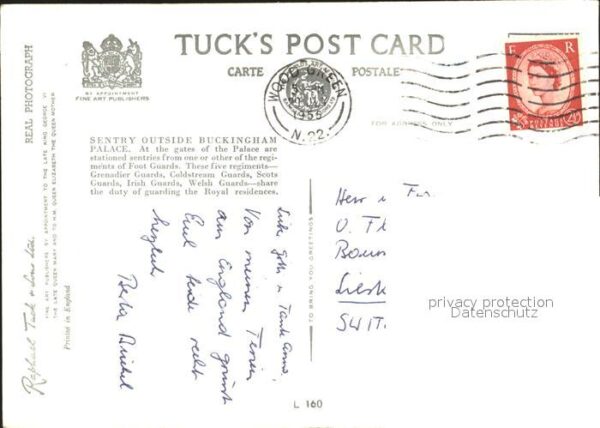 TUCK'S POST CARD
CARTE POSTALE
BY APPOINTMENT
FINE ART PUBLISHERS
WOOD GREEN
1956
N.22.
E R
FOR ADDRESS ONLY
REAL PHOTOGRAPH
FINE ART PUBLISHERS BY APPOINTMENT TO THE LATE KING GEORGE VI
THE LATE QUEEN MARY AND TO H.M. QUEEN ELIZABETH THE QUEEN MOTHER
Raphael Tuck & Sons Ltd.
Printed in England
SENTRY OUTSIDE BUCKINGHAM
PALACE. At the gates of the Palace are
stationed sentries from one or other of the regi-
ments of Foot Guards. These five regiments—
Grenadier Guards, Coldstream Guards, Scots
Guards, Irish Guards, Welsh Guards—share
the duty of guarding the Royal residences.
Tante Anna,
Von meinen Ferien
aus England grüsst
Euch beide recht
herzlich
TO BRING YOU GREETINGS
Herr
SWIT
privacy protection
Datenschutz
L 160